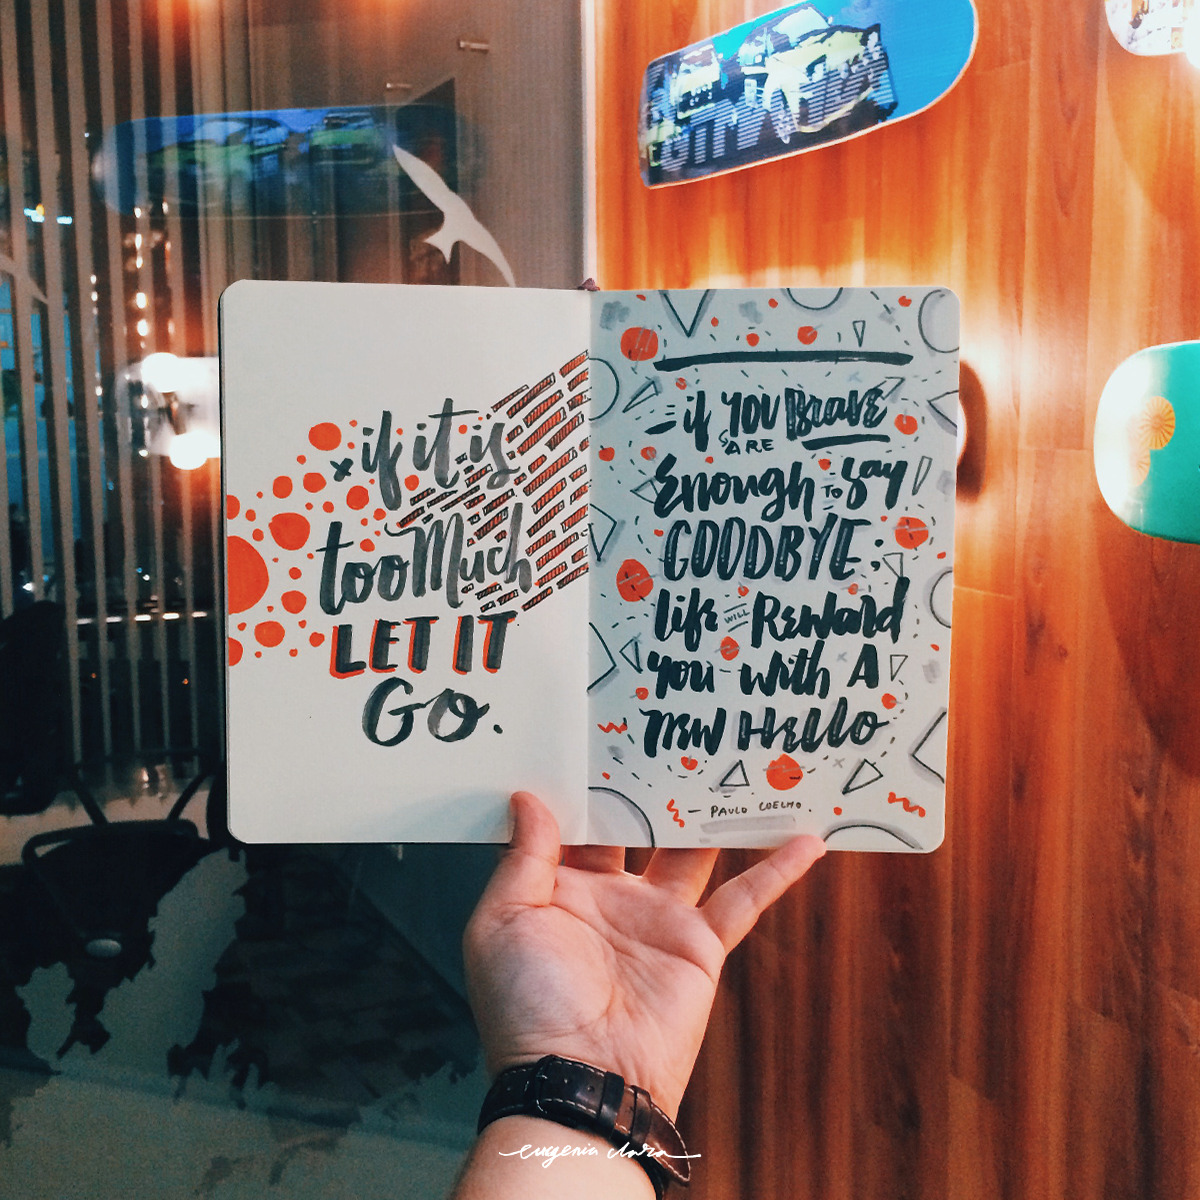 if it is
too Much
LET IT
Go.
if YOU BravE
ARE
Enough TO Say
GOODBYE,
life WILL Reward
you with A
new Hello
— PAULO COELHO.
eugenia clara